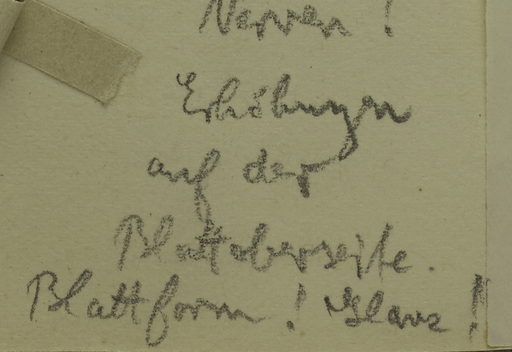 Nerven!
Erhöhungen
auf der
Blattoberseite.
Blattform! Glanz!